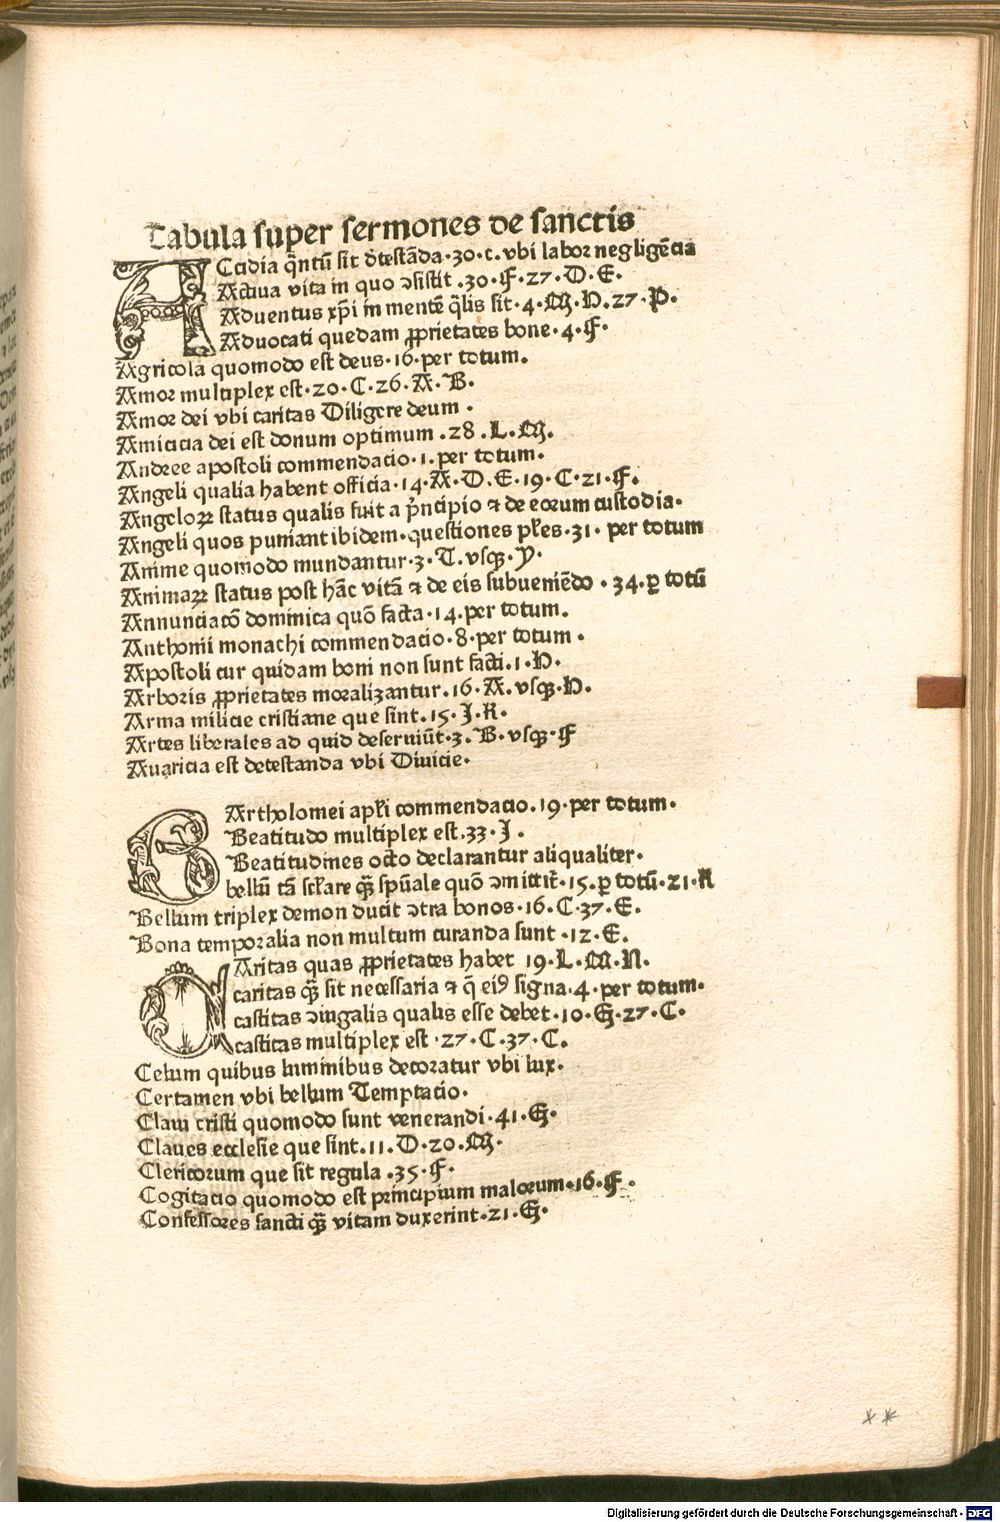 Tabula super sermones de sanctis
ACcidia q̄ntū sit detestāda·30·c. vbi labor negligēcia
Actiua vita in quo ↄsistit .30·F·27·D·E·
Aduentus xp̄i in mentē q̄lis sit·4·M·N·27·P·
Aduocati quedam ꝓprietates bone·4·F·
Agricola quomodo est deus·16·per totum.
Amor multiplex est·20·C·26·A·B·
Amor dei vbi caritas Diligere deum .
Amicicia dei est donum optimum .28.L.M.
Andree apostoli commendacio·1.per totum.
Angeli qualia habent officia·14·A·D·E·19·C·21·F·
Angeloꝝ status qualis fuit a p̄ncipio ⁊ de eorum custodia·
Angeli quos puniant ibidem·questiones pl̄es·31· per totum
Anime quomodo mundantur·3·T·vsqꝫ·Y·
Animaꝝ status post hāc vitā ⁊ de eis subueniēdo ·34·ꝑ totū
Annunciacō dominica quō facta·14·per totum.
Anthonii monachi commendacio·8·per totum·
Apostoli cur quidam boni non sunt facti·1·N·
Arboris ꝓprietates moralizantur·16·A·vsqꝫ·N·
Arma milicie cristiane que sint·15·J·K·
Artes liberales ad quid deseruiūt·3·B·vsqꝫ·F
Auaricia est detestanda vbi Diuicie·
BArtholomei apl̄i commendacio·19·per totum·
Beatitudo multiplex est·33·J·
Beatitudines octo declarantur aliqualiter·
bellū tā sc̄lare qꝫ̄ sp̄uale quō ↄmittit̄·15·ꝑ totū·21·K
Bellum triplex demon ducit ↄtra bonos·16·C·37·E·
Bona temporalia non multum curanda sunt ·12·E·
CAritas quas ꝓprietates habet 19·L·M·N·
caritas qꝫ̄ sit necessaria ⁊ q̄ eiꝰ signa·4·per totum·
castitas ↄiugalis qualis esse debet·10·G·27·C·
castitas multiplex est ·27·C·37·C.
Celum quibus luminibus decoratur vbi lux·
Certamen vbi bellum Temptacio·
Claui cristi quomodo sunt venerandi·41·G·
Claues ecclesie que sint·11·D·20·M·
Clericorum que sit regula ·35·F·
Cogitacio quomodo est principium malorum·16·F·
Confessores sancti qꝫ̄ vitam duxerint·21·G·
**
Digitalisierung gefördert durch die Deutsche Forschungsgemeinschaft - DFG